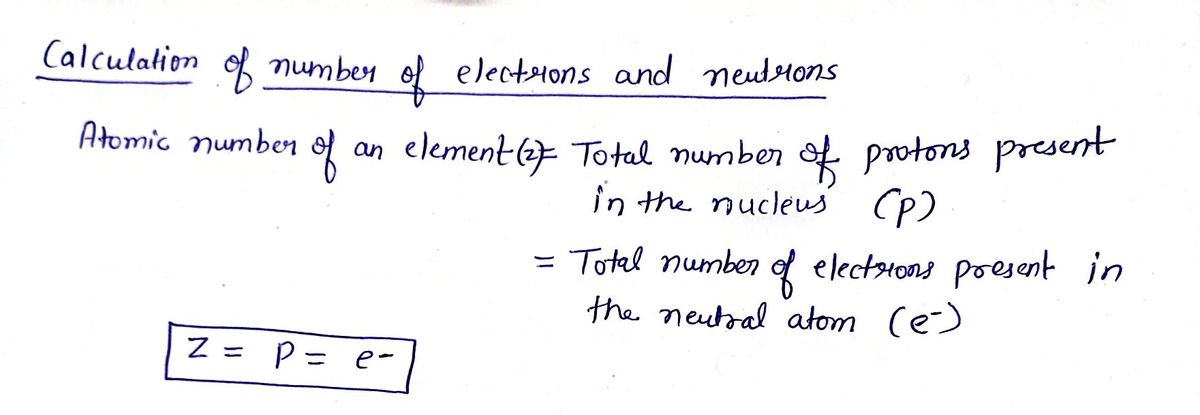 Calculation of number of electrons and neutrons
Atomic number of an element (z) = Total number of protons present
in the nucleus (p)
= Total number of electrons present in
the neutral atom (e-)
Z = P = e-